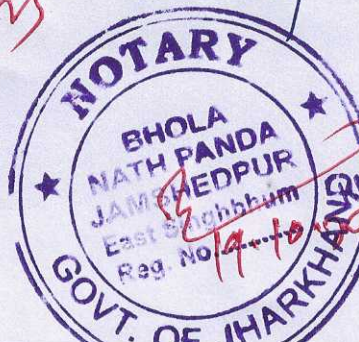 NOTARY
BHOLA
NATH PANDA
JAMSHEDPUR
East Singhbhum
Reg. No...........
19.10.
GOVT. OF JHARKHAND